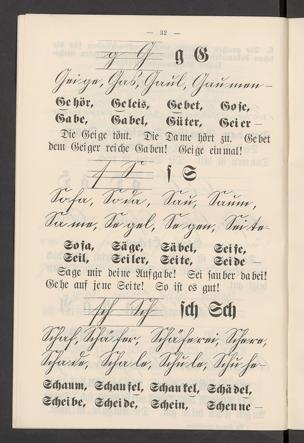 — 32 —
g G g G
Geige, Gas, Gaul, Gaumen —
Gehör, Geleis, Gebet, Gose,
Gabe, Gabel, Güter, Geier —
Die Geige tönt. Die Dame hört zu. Gebet
dem Geiger reiche Gaben! Geige einmal!
s S s S
Sofa, Soda, Sau, Saum,
Same, Segel, Segen, Seite —
Sofa, Säge, Säbel, Seife,
Seil, Seiler, Seite, Seide —
Sage mir deine Aufgabe! Sei sauber dabei!
Gehe auf jene Seite! So ist es gut!
sch Sch sch Sch
Schaf, Schäfer, Schäferei, Schere,
Schade, Schale, Schule, Schuhe
Schaum, Schaufel, Schaukel, Schädel,
Scheibe, Scheide, Schein, Scheune —